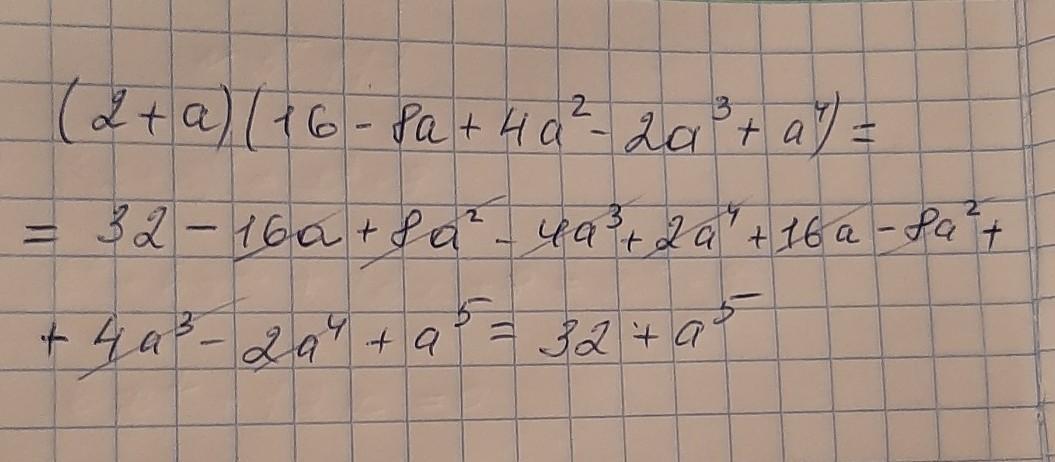 (2+a)(16-8a+4a²-2a³+a⁴)=
= 32-16a+8a²-4a³+2a⁴+16a-8a²+
+4a³-2a⁴+a⁵=32+a⁵